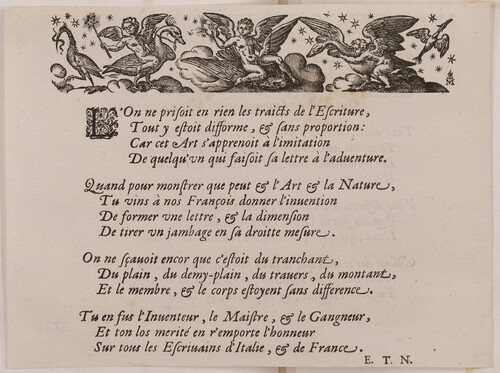 L'On ne prisoit en rien les traicts de l'Escriture,
Tout y estoit difforme, & sans proportion:
Car cet Art s'apprenoit à l'imitation
De quelqu'vn qui faisoit sa lettre à l'aduenture.
Quand pour monstrer que peut & l'Art & la Nature,
Tu vins à nos François donner l'inuention
De former vne lettre, & la dimension
De tirer vn jambage en sa droitte mesure.
On ne sçauoit encor que c'estoit du tranchant,
Du plain, du demy-plain, du trauers, du montant,
Et le membre, & le corps estoyent sans difference.
Tu en fus l'Inuenteur, le Maistre, & le Gangneur,
Et ton los merité en r'emporte l'honneur
Sur tous les Escriuains d'Italie, & de France.
E. T. N.